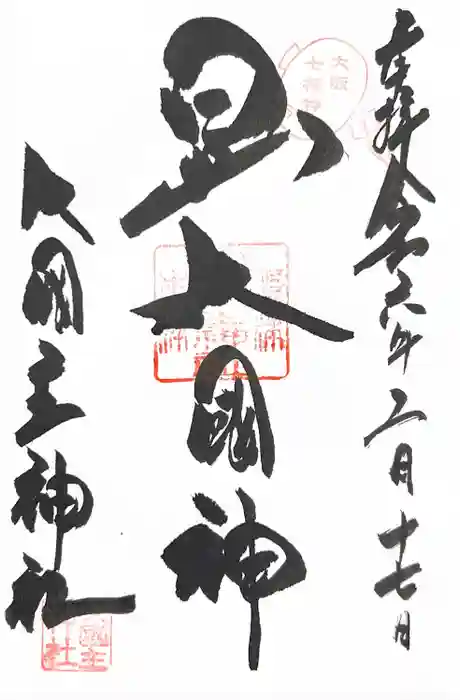 奉拝 令和六年 二月十七日
大阪
七福神
大國神
大國主神社